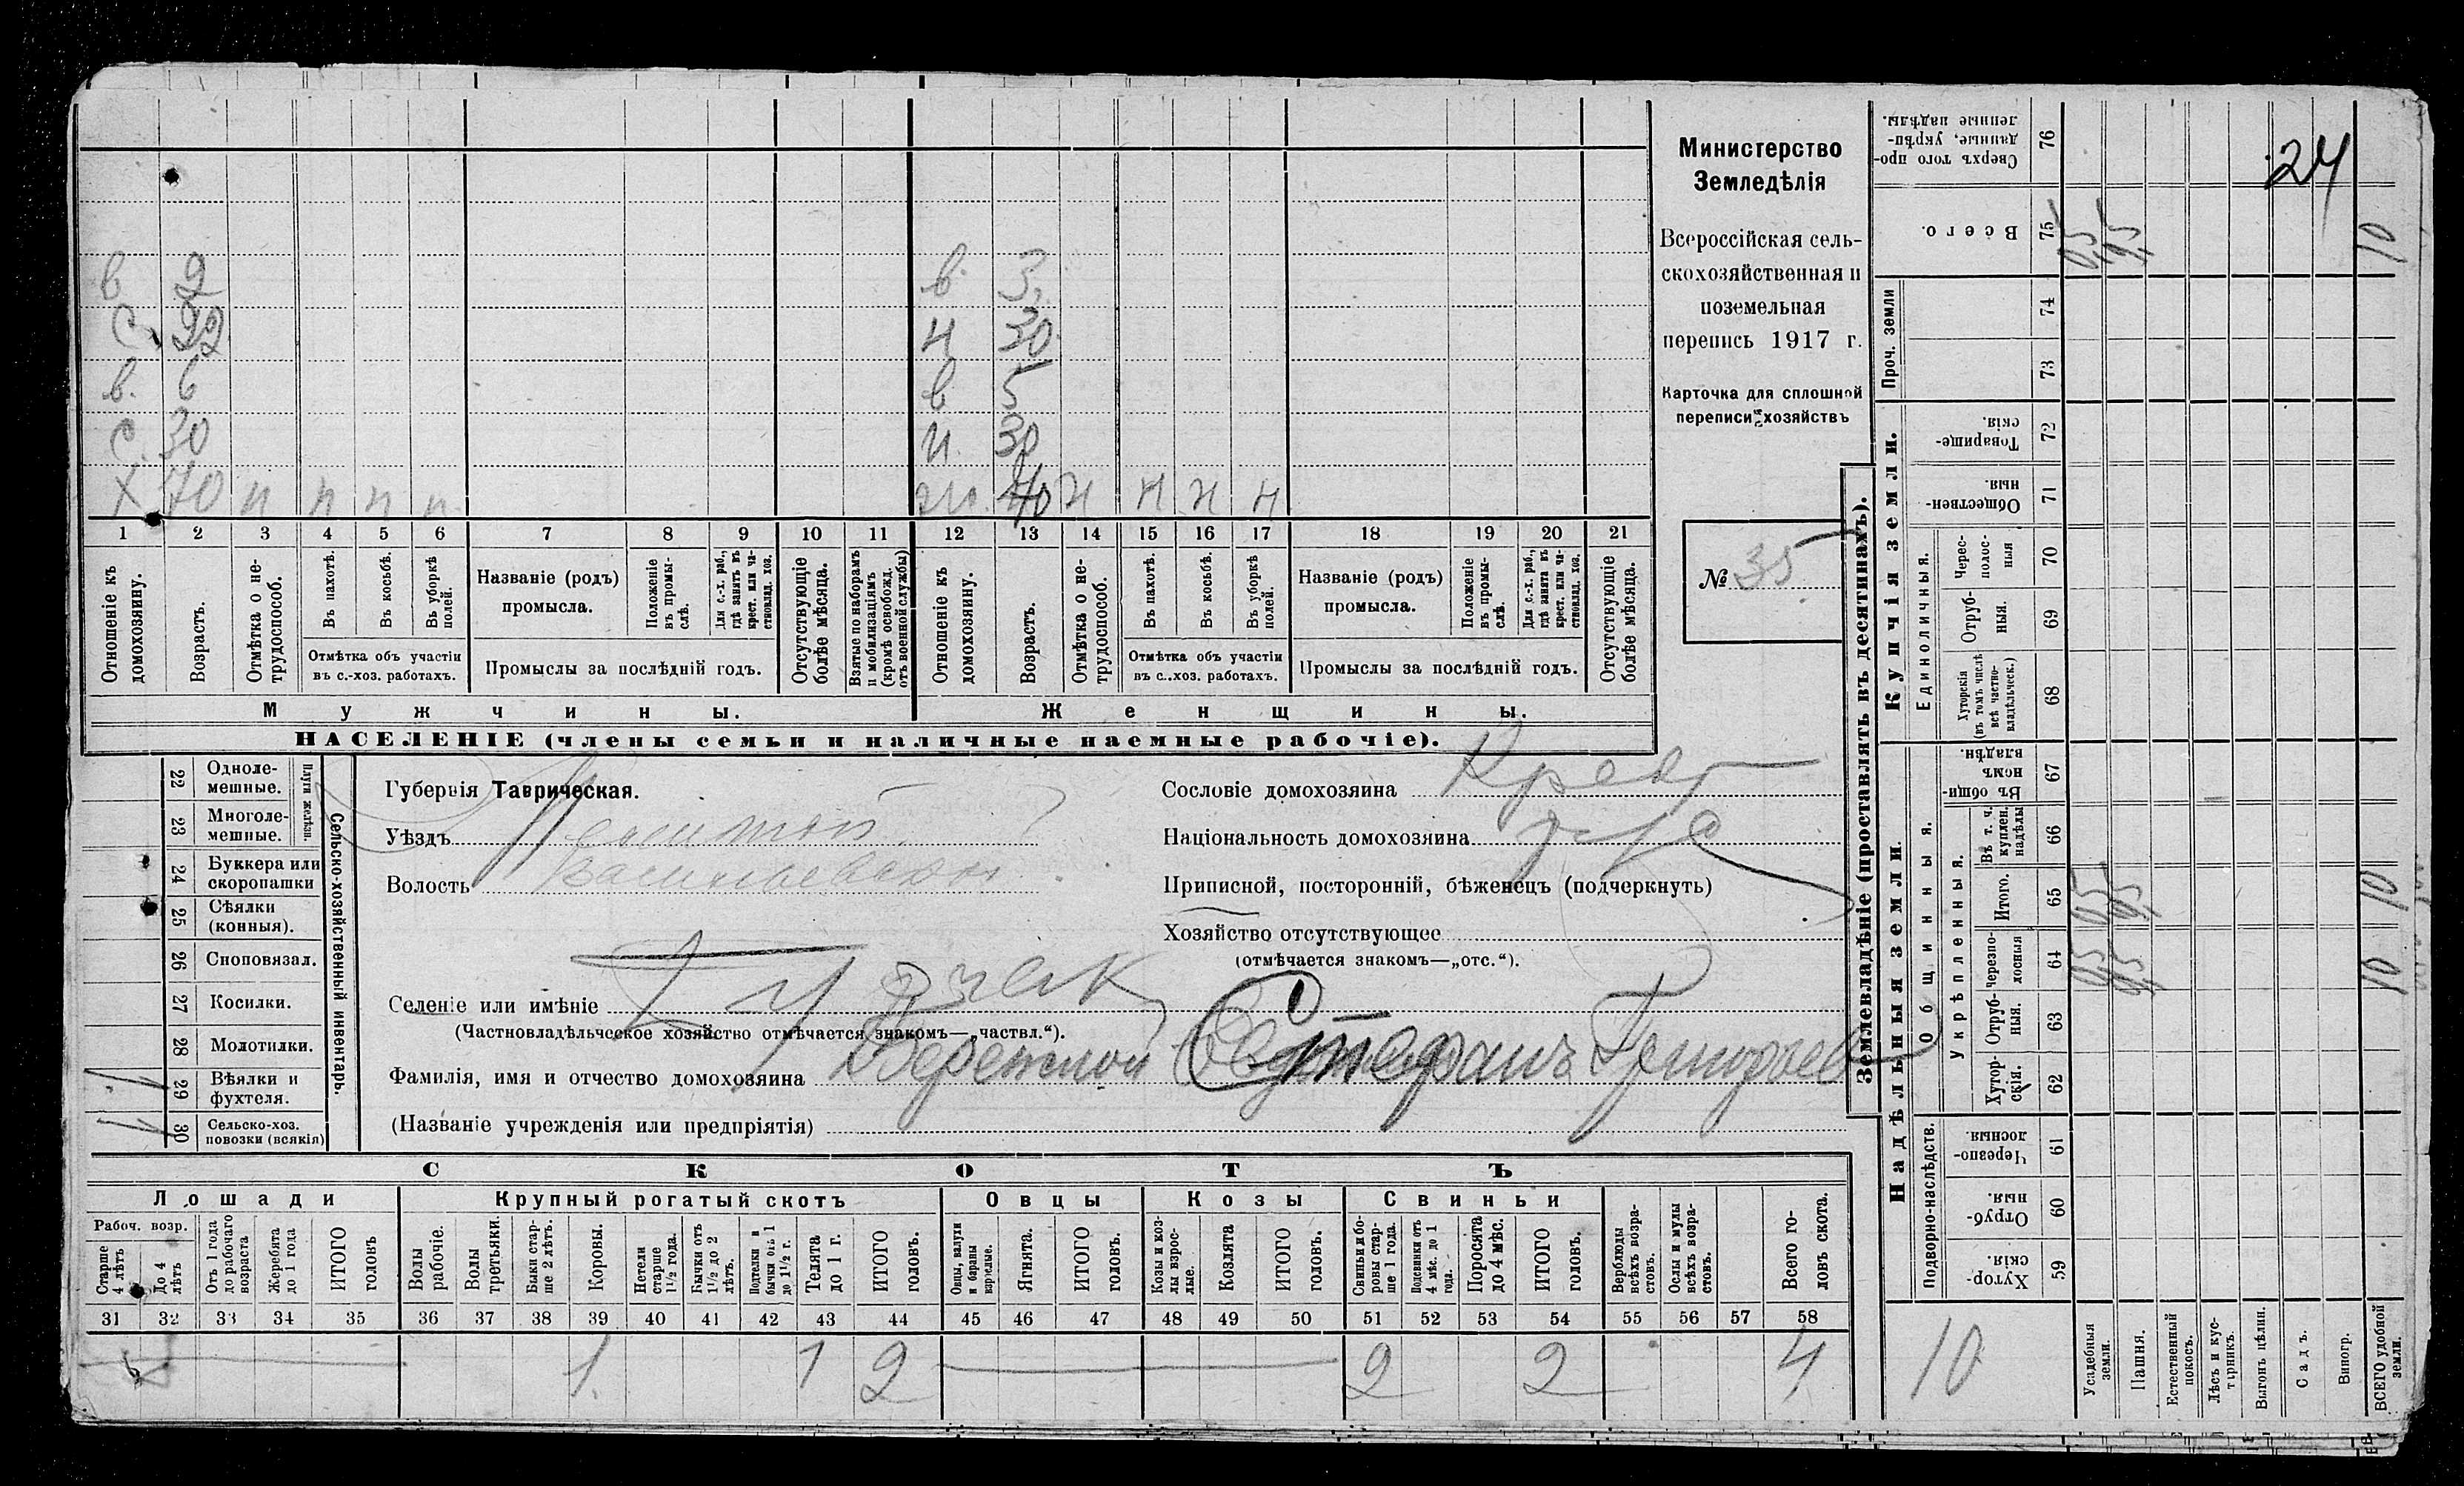 24
в 2 в 3
с 22 н 30
в. 6 в 5
с. 30 н. 30
Х 70 п п п п ж. 40 н н н н
1 2 3 4 5 6 7 8 9 10 11 12 13 14 15 16 17 18 19 20 21
Отношеніе къ домохозяину.
Возрастъ.
Отмѣтка о не-трудоспособ.
Въ пахотѣ.
Въ косьбѣ.
Въ уборкѣ полей.
Отмѣтка объ участіи
въ с.-хоз. работахъ.
Названіе (родъ)
промысла.
Положеніе въ промы-слѣ.
Для с.-х. раб., гдѣ занятъ въ крест. или ча-стновлад. хоз.
Промыслы за послѣдній годъ.
Отсутствующіе болѣе мѣсяца.
Взятые по наборамъ и мобилизаціямъ (кромѣ освобожд. отъ военной службы)
Отношеніе къ домохозяину.
Возрастъ.
Отмѣтка о не-трудоспособ.
Въ пахотѣ.
Въ косьбѣ.
Въ уборкѣ полей.
Отмѣтка объ участіи
въ с..хоз. работахъ.
Названіе (родъ)
промысла.
Положеніе въ промы-слѣ.
Для с.-х. раб., гдѣ занята въ крест. или ча-стновлад. хоз.
Промыслы за послѣдній годъ.
Отсутствующіе болѣе мѣсяца.
Мужчины.
Женщины.
НАСЕЛЕНІЕ (члены семьи и наличные наемные рабочіе).
Министерство
Земледѣлія
Всероссійская сель-
скохозяйственная и
поземельная
перепись 1917 г.
Карточка для сплошной
переписи хозяйствъ
№ 35
Сельско-хозяйственный инвентарь.
Плуги желѣзн.
22 Одноле-мешные.
23 Многоле-мешные.
24 Буккера или скоропашки
25 Сѣялки (конныя).
26 Сноповязал.
27 Косилки.
28 Молотилки.
29 Вѣялки и фухтеля.
30 Сельско-хоз. повозки (всякія)
Губернія Таврическая.
Уѣздъ
Волость
Селеніе или имѣніе
(Частновладѣльческое хозяйство отмѣчается знакомъ—„частвл.“).
Фамилія, имя и отчество домохозяина Бережной Стефанъ Григорьев
(Названіе учрежденія или предпріятія)
Сословіе домохозяина Крест
Національность домохозяина
Приписной, посторонній, бѣженецъ (подчеркнуть)
Хозяйство отсутствующее
(отмѣчается знакомъ—„отс.“).
СКОТЪ
Лошади Крупный рогатый скотъ Овцы Козы Свиньи
Рабоч. возр.
Старше 4 лѣтъ
До 4 лѣтъ
Отъ 1 года до рабочаго возраста
Жеребята до 1 года
ИТОГО головъ
Волы рабочіе.
Волы третьяки.
Быки стар-ше 2 лѣтъ.
Коровы.
Нетели старше 1½ года.
Бычки отъ 1½ до 2 лѣтъ.
Подтелки и бычки отъ 1 до 1½ г.
Телята до 1 г.
ИТОГО головъ.
Овцы, валухи и бараны взрослые.
Ягнята.
ИТОГО головъ.
Козы и коз-лы взрос-лые.
Козлята
ИТОГО головъ.
Свиньи и бо-ровы стар-ше 1 года.
Подсвинки отъ 4 мѣс. до 1 года.
Поросята до 4 мѣс.
ИТОГО головъ.
Верблюды всѣхъ возра-стовъ.
Ослы и мулы всѣхъ возра-стовъ.
Всего го-ловъ скота.
31 32 33 34 35 36 37 38 39 40 41 42 43 44 45 46 47 48 49 50 51 52 53 54 55 56 57 58
1 1 2 2 2 4
Землевладѣніе (проставлять въ десятинахъ).
Купчія земли.
Надѣльныя земли.
Сверхъ того про-данные, укрѣп-ленные надѣлы. 76
Всего. 75
Проч. земли 74
73
Товарище-скія. 72
Обществен-ныя. 71
Единоличныя.
Черес-полос-ныя 70
Отруб-ныя. 69
Хуторскія (въ томъ числѣ всѣ частно-владѣльческ.) 68
Общинныя.
Въ общи-номъ владѣн. 67
Укрѣпленныя.
Въ т. ч. куплен. надѣлы 66
Итого. 65
черезпо-лосныя 64
Отруб-ныя. 63
Хутор-скія. 62
Подворно-наслѣдств.
Черезпо-лосныя. 61
Отруб-ныя. 60
Хутор-скія. 59
10
10
10
10
Усадебныя земли.
Пашня.
Естественный покосъ.
Лѣсъ и кус-тарникъ.
Выгонъ цѣлин.
Садъ.
Виногр.
ВСЕГО удобной земли.